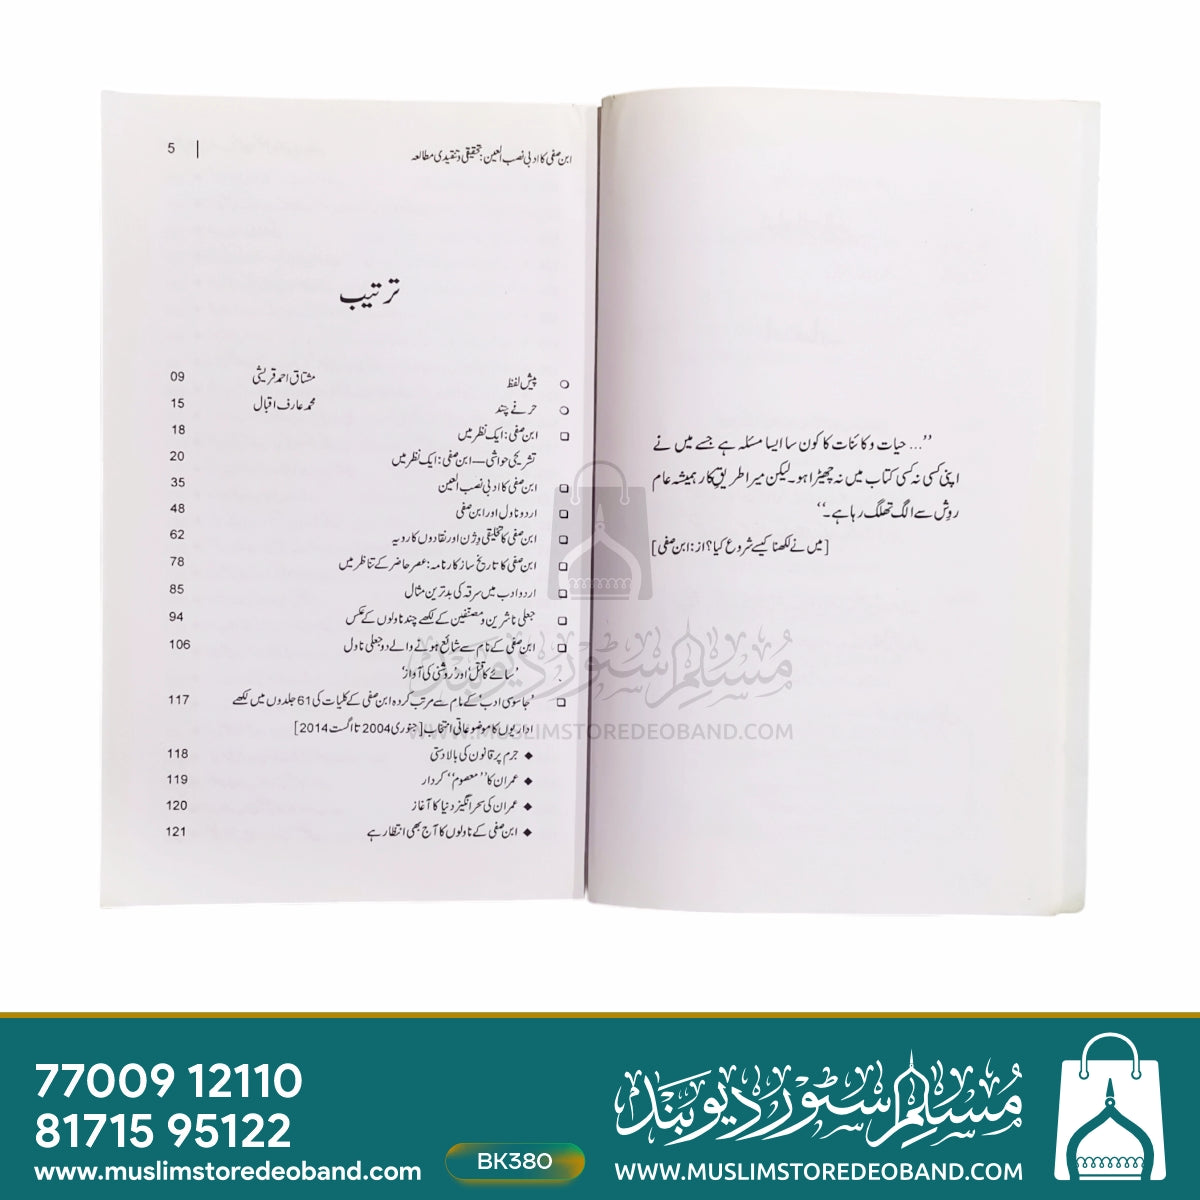 ابن صفی کا ادبی نصب العین: تحقیقی و تنقیدی مطالعہ | 5
ترتیب
پیش لفظ مشتاق احمد قریشی 09
حرفے چند محمد عارف اقبال 15
ابن صفی: ایک نظر میں 18
تشریحی حواشی—ابن صفی: ایک نظر میں 20
ابن صفی کا ادبی نصب العین 35
اردو ناول اور ابن صفی 48
ابن صفی کا تخلیقی وژن اور نقادوں کا رویہ 62
ابن صفی کا تاریخ ساز کارنامہ: عصر حاضر کے تناظر میں 78
اردو ادب میں سرقہ کی بدترین مثال 85
جعلی ناشرین و مصنّفین کے لکھے چند ناولوں کے عکس 94
ابن صفی کے نام سے شائع ہونے والے دو جعلی ناول 106
’سائے کا قتل‘ اور ’روشنی کی آواز‘
’جاسوسی ادب‘ کے نام سے مرتب کردہ ابن صفی کے کلیات کی 61 جلدوں میں لکھے 117
اداریوں کا موضوعاتی انتخاب [جنوری 2004 تا اگست 2014]
◆ جرم پر قانون کی بالادستی 118
◆ عمران کا ’’معصوم‘‘ کردار 119
◆ عمران کی سحر انگیز دنیا کا آغاز 120
◆ ابن صفی کے ناولوں کا آج بھی انتظار ہے 121
’’... حیات و کائنات کا کون سا ایسا مسئلہ ہے جسے میں نے
اپنی کسی نہ کسی کتاب میں نہ چھیڑا ہو۔ لیکن میرا طریقِ کار ہمیشہ عام
روِش سے الگ تھلگ رہا ہے۔‘‘
[میں نے لکھنا کیسے شروع کیا؟ از: ابن صفی]
مسلم سٹور دیوبند
WWW.MUSLIMSTOREDEOBAND.COM
77009 12110
81715 95122
www.muslimstoredeoband.com
BK380
مسلم سٹور دیوبند
WWW.MUSLIMSTOREDEOBAND.COM